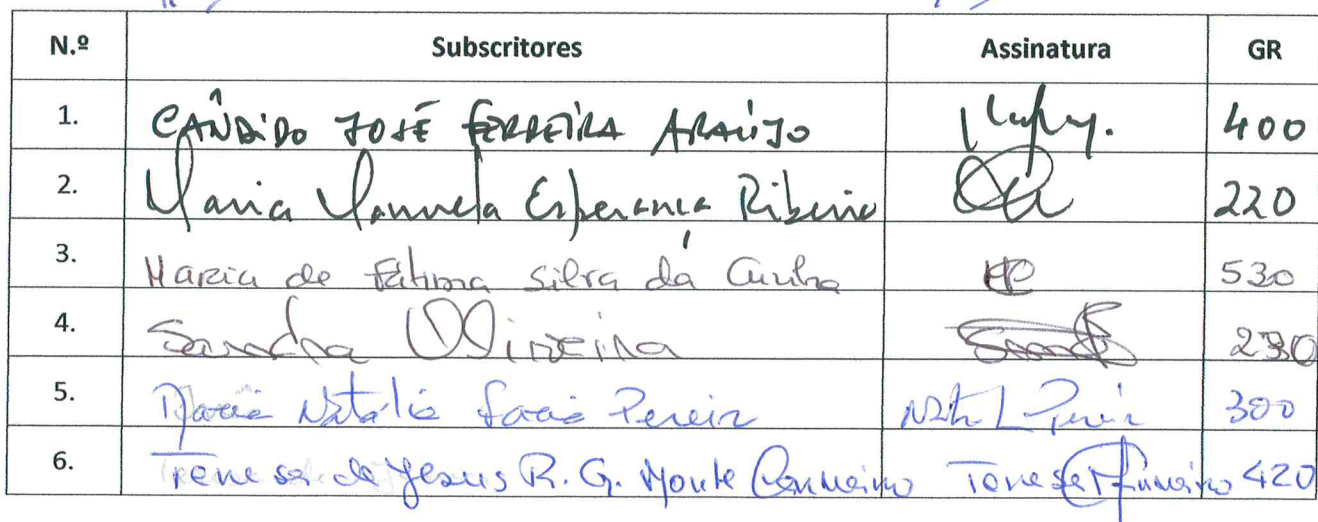 N.º Subscritores Assinatura GR
1. CÂNDIDO JOSÉ FERREIRA ARAÚJO 400
2. Maria Manuela Esperança Ribeiro 220
3. Maria de Fátima Silva da Cunha 530
4. Sandra Oliveira 230
5. Maria Natália Pereir 300
6. Teresa de Jesus R. G. Monte Carneiro Teresa 420